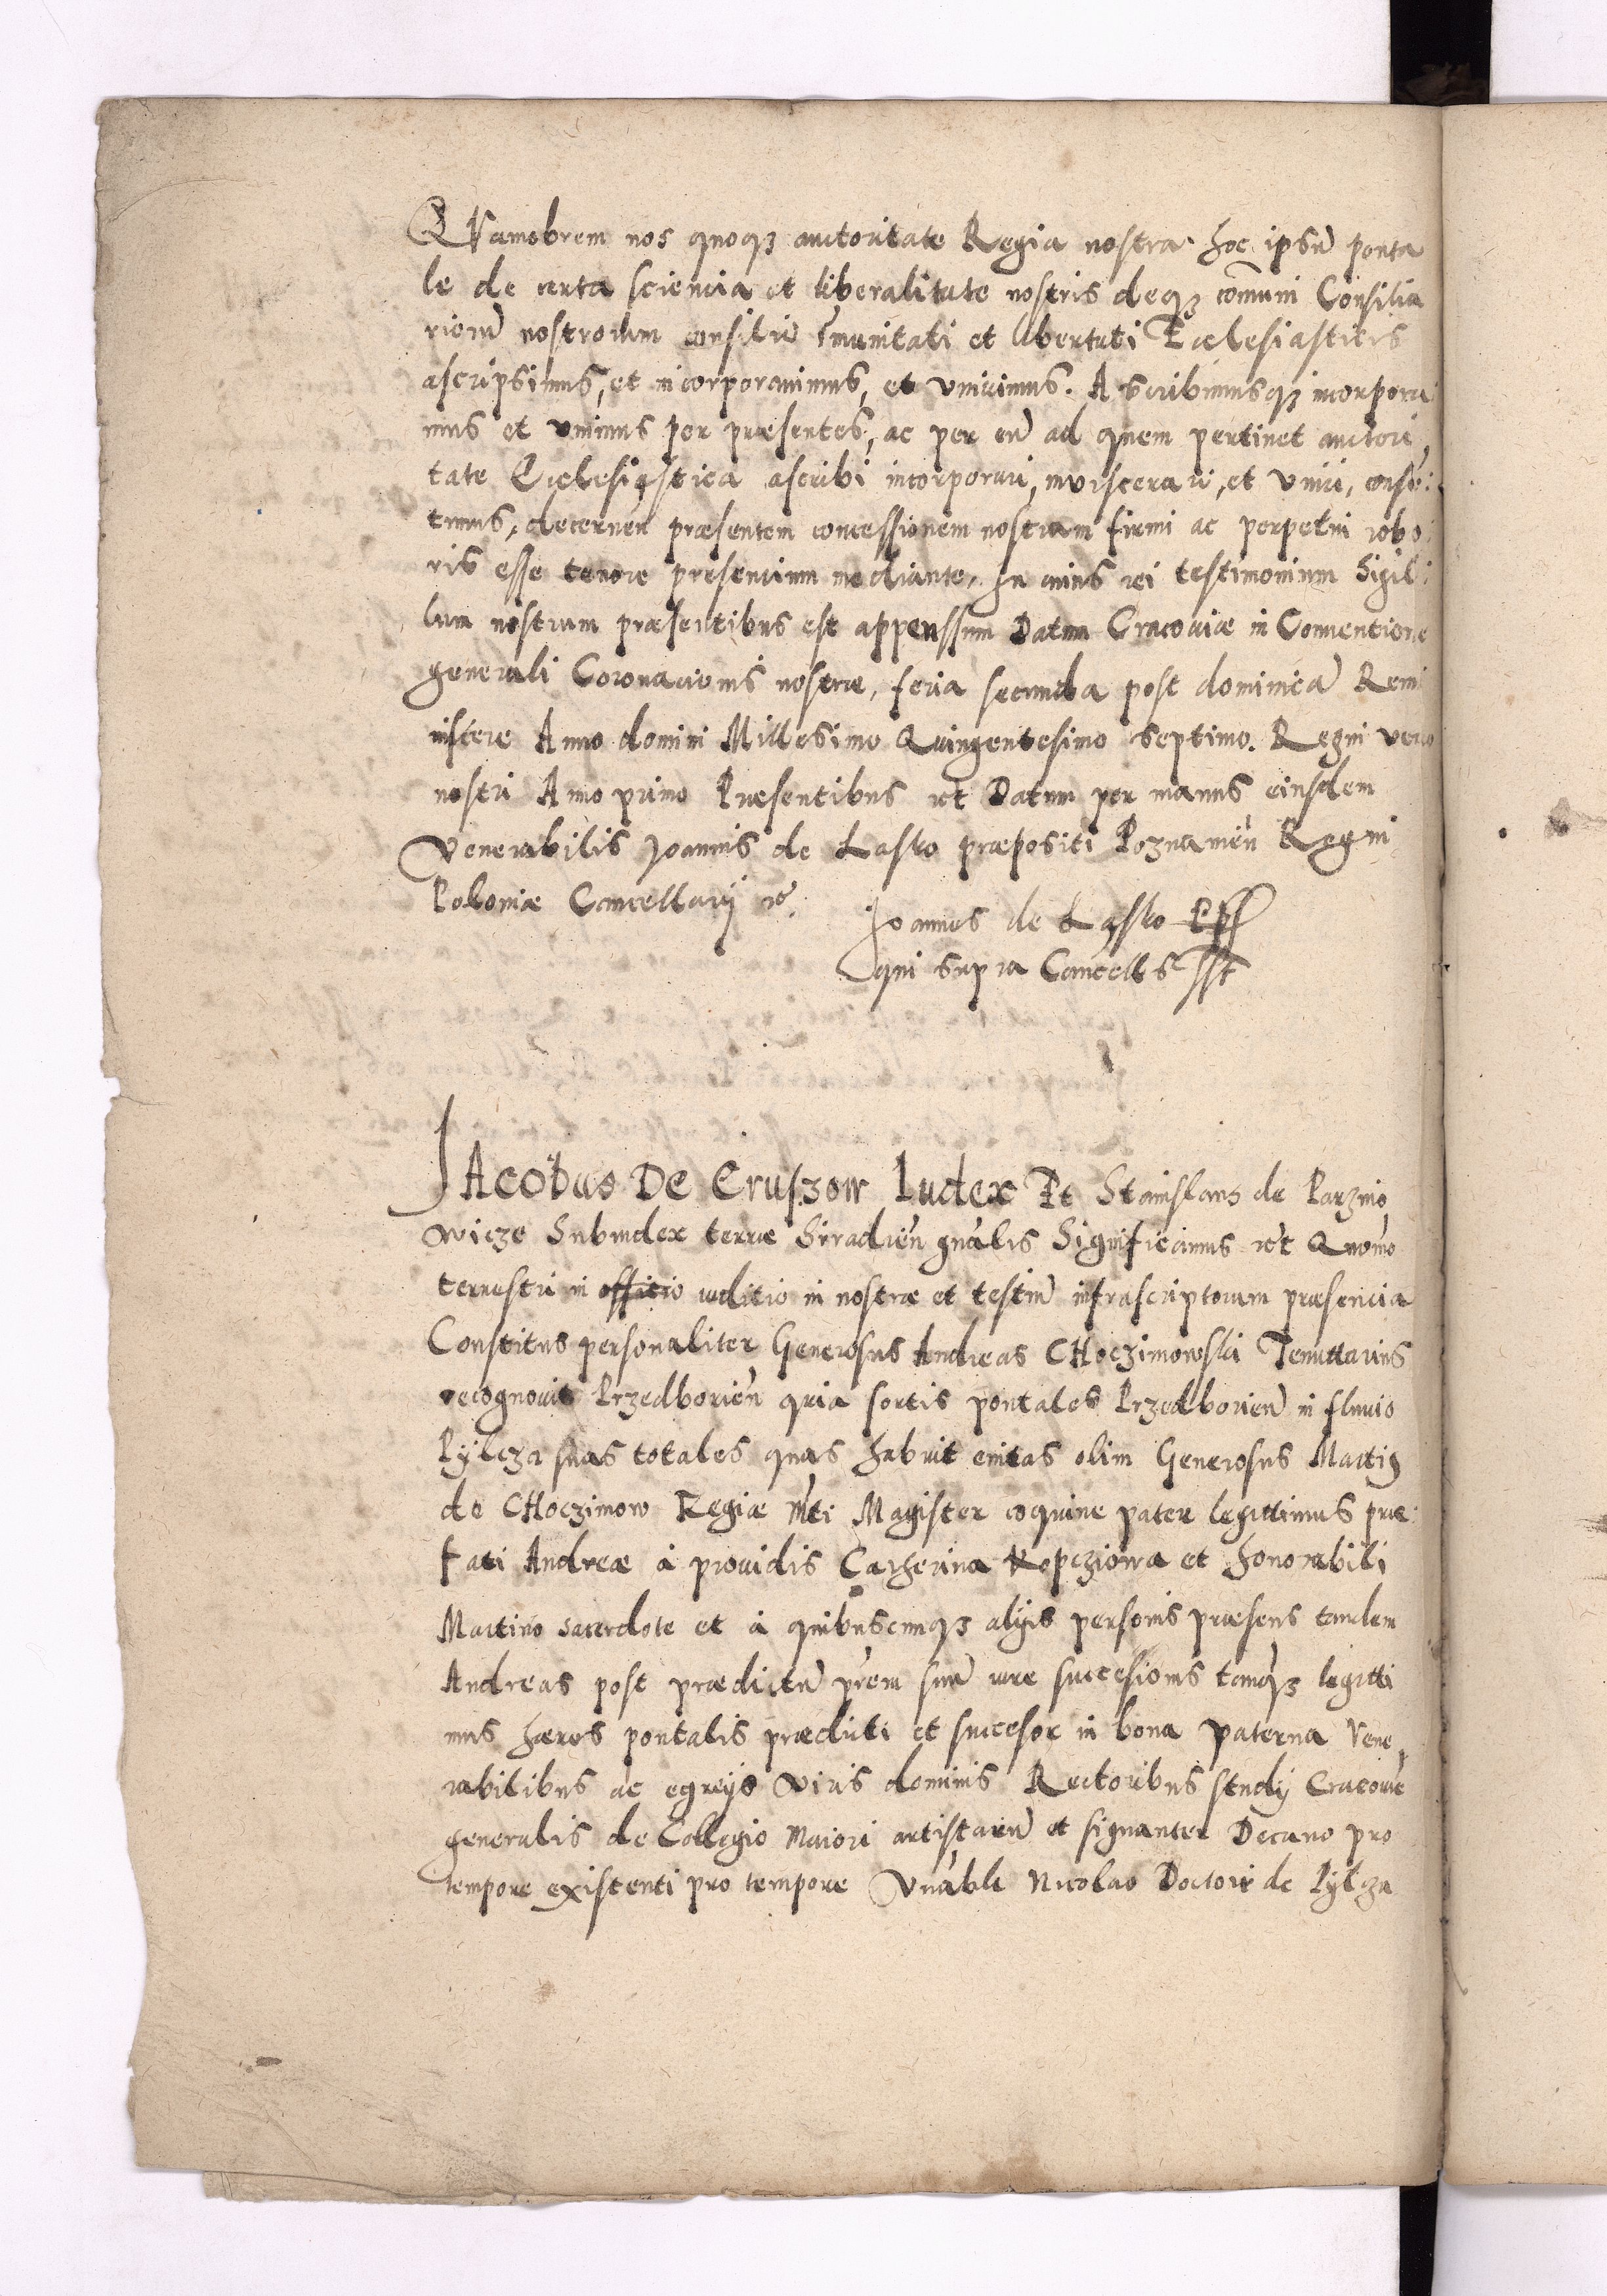 QVamobrem nos quoqȝ auctoritate Regia nostra hoc ipsũ ponta
le de certa sciencia et liberalitate nostris deqȝ com̃uni Consilia
riorũ nostrorum consiliũ Im̃unitati et libertati Ecclesiasticis
ascripsimus, et incorporauimus, et vniuimus. Ascribimusqȝ incorpora
mus et vnimus per præsentes, ac per eũ ad quem pertinet auctori
tate Ecclesiastica ascribi incorporari, inviscerari, et vniri, consẽ:
timus, decernen̄ præsentem concessionem nostram firmi ac perpetui robo:
ris esse tenore presencium mediante, In cuius rei testimonium Sigil:
lum nostrum præsentibus est appenssum Datum Cracouiæ in Conuentione
generali Coronacionis nostræ, feria secunda post dominicã Remi
niscere Anno domini Millesimo Quingentesimo Septimo. Regni vero
nostri Anno primo Præsentibus et Datum per manus eiusdem
Venerabilis Joannis de Lasko præpositi Poznanien̄ Regni
Poloniæ Cancellarij
Joannes de Lassko
qui supra Cancells sst
JAcobus De Cruszow Iudex Et Stanislaus de Parznio
wicze Subiudex terræ Sirradien̄ gñalis Significamus Quomõ
terrestri in officio iuditio in nostræ et testiũ infrascriptorum præsencia
Constitus personaliter Generosus Andreas CHoczimowski Tenuttarius
recognouit Przedborien̄ quia sortis pontales Przedborien̄ in fluuio
Pylcza suas totales quas habuit emtas olim Generosus Martiꝰ
de CHoczimow Regiæ Mti Magister coquine pater legittimus præ:
fati Andreæ à prouidis Catherina Kopcziowa et honorabili
Martino sacerdote et à quibuscunqȝ alijs personis præsens tandem
Andreas post prædictũ prẽm suũ iure succesionis tamqȝ legitti
mus hæres pontalis prædicti et succesor in bona paterna Vene
rabilibus ac egreijs viris dominis Rectoribus studij Cracouiẽ
generalis de Collegio Maiori artistarũ et signanter Decano pro
tempore existenti pro tempore Vnãbli Nicolao Doctori de Pylcza